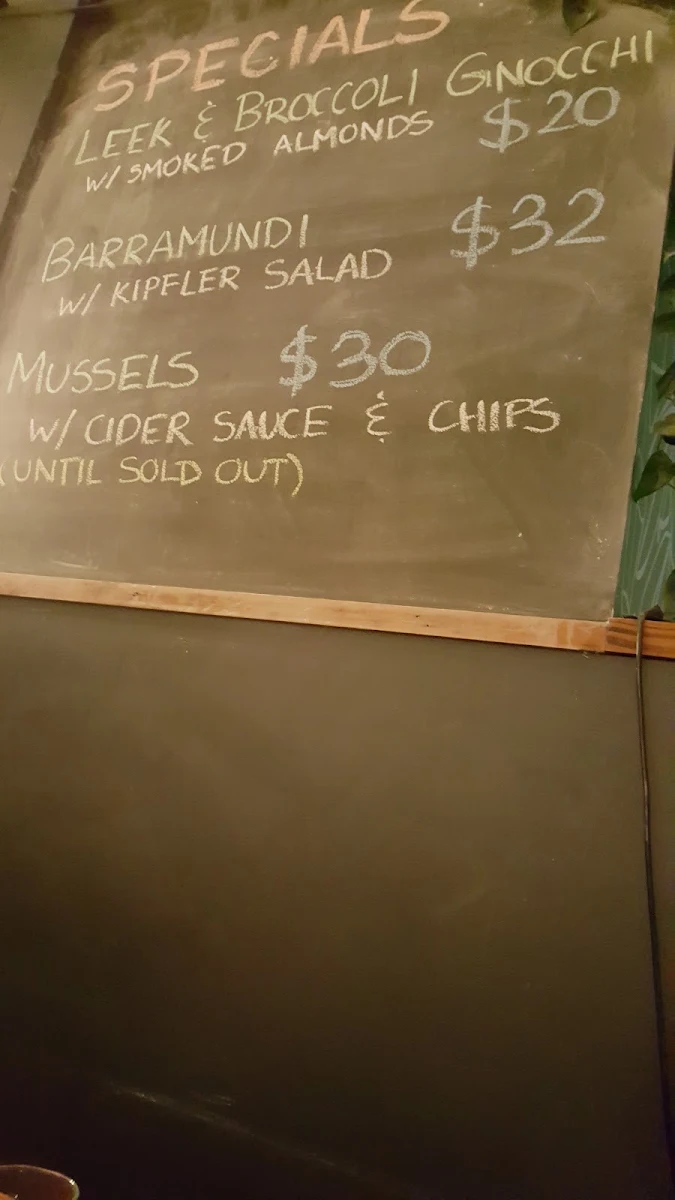 SPECIALS
LEEK & BROCCOLI GINOCCHI
W/ SMOKED ALMONDS $20
BARRAMUNDI $32
W/ KIPFLER SALAD
MUSSELS $30
W/ CIDER SAUCE & CHIPS
(UNTIL SOLD OUT)